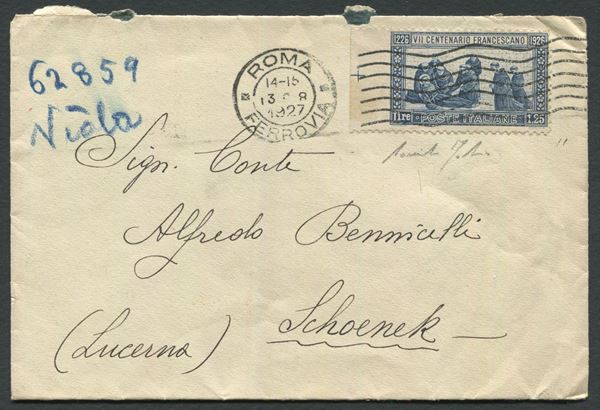 62859
Nidla
ROMA
14-15
13 8
1927
FERROVIA
1226 VII CENTENARIO FRANCESCANO 1926
lire POSTE ITALIANE 1.25
Sign. Conte
Alfredo Bennicelli
(Lucerna) Schoenek